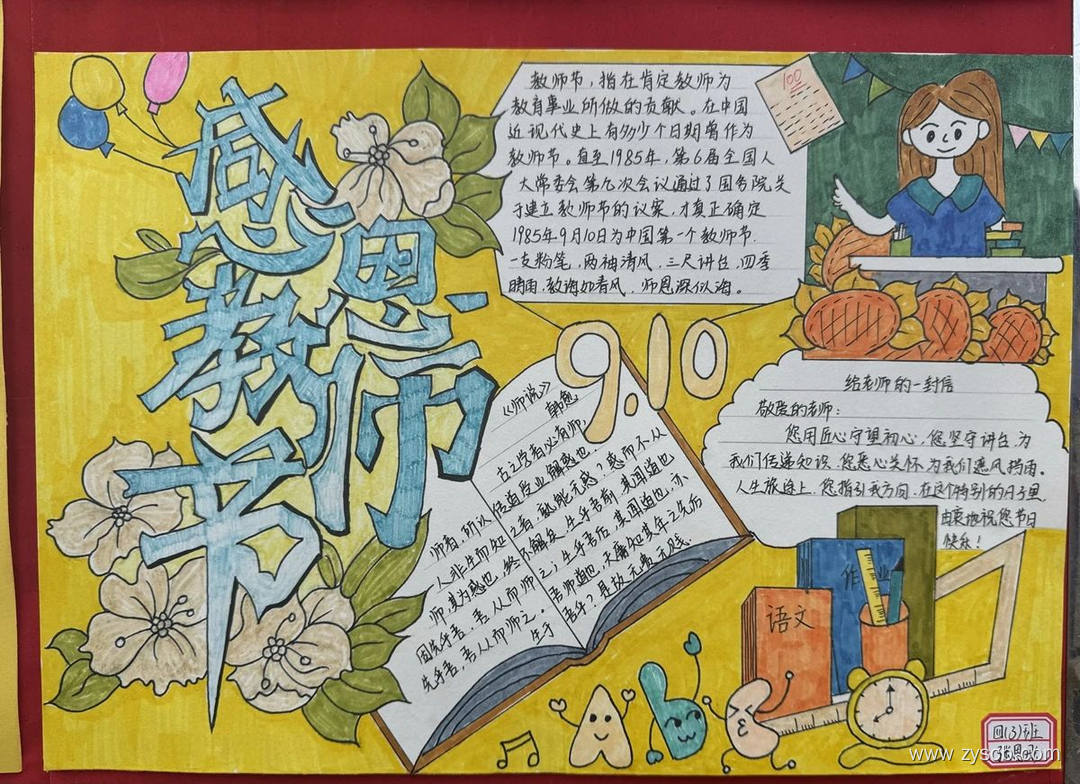 感恩教师节
教师节，指在肯定教师为
教育事业所做的贡献。在中国
近现代史上有多少个日期曾作为
教师节。直至1985年，第6届全国人
大常委会第九次会议通过了国务院关
于建立教师节的议案，才真正确定
1985年9月10日为中国第一个教师节.
一支粉笔，两袖清风，三尺讲台，四季
晴雨，教诲如春风，师恩深似海。
100
9.10
给老师的一封信
敬爱的老师：
您用匠心守望初心，您坚守讲台，为
我们传递知识，您悉心关怀为我们遮风挡雨。
人生旅途上，您指引我方向，在这个特别的日子里
由衷地祝您节日
快乐！
《师说》
韩愈
古之学者必有师，
师者，所以传道受业解惑也。
人非生而知之者，孰能无惑？惑而不从
师，其为惑也，终不解矣。生乎吾前，其闻道也
固先乎吾，吾从而师之；生乎吾后，其闻道也，亦
先乎吾，吾从而师之。吾师道也，夫庸知其年之先后
生于吾乎？是故无贵无贱
语文
作业
A b c
四(3)班
www.zysc